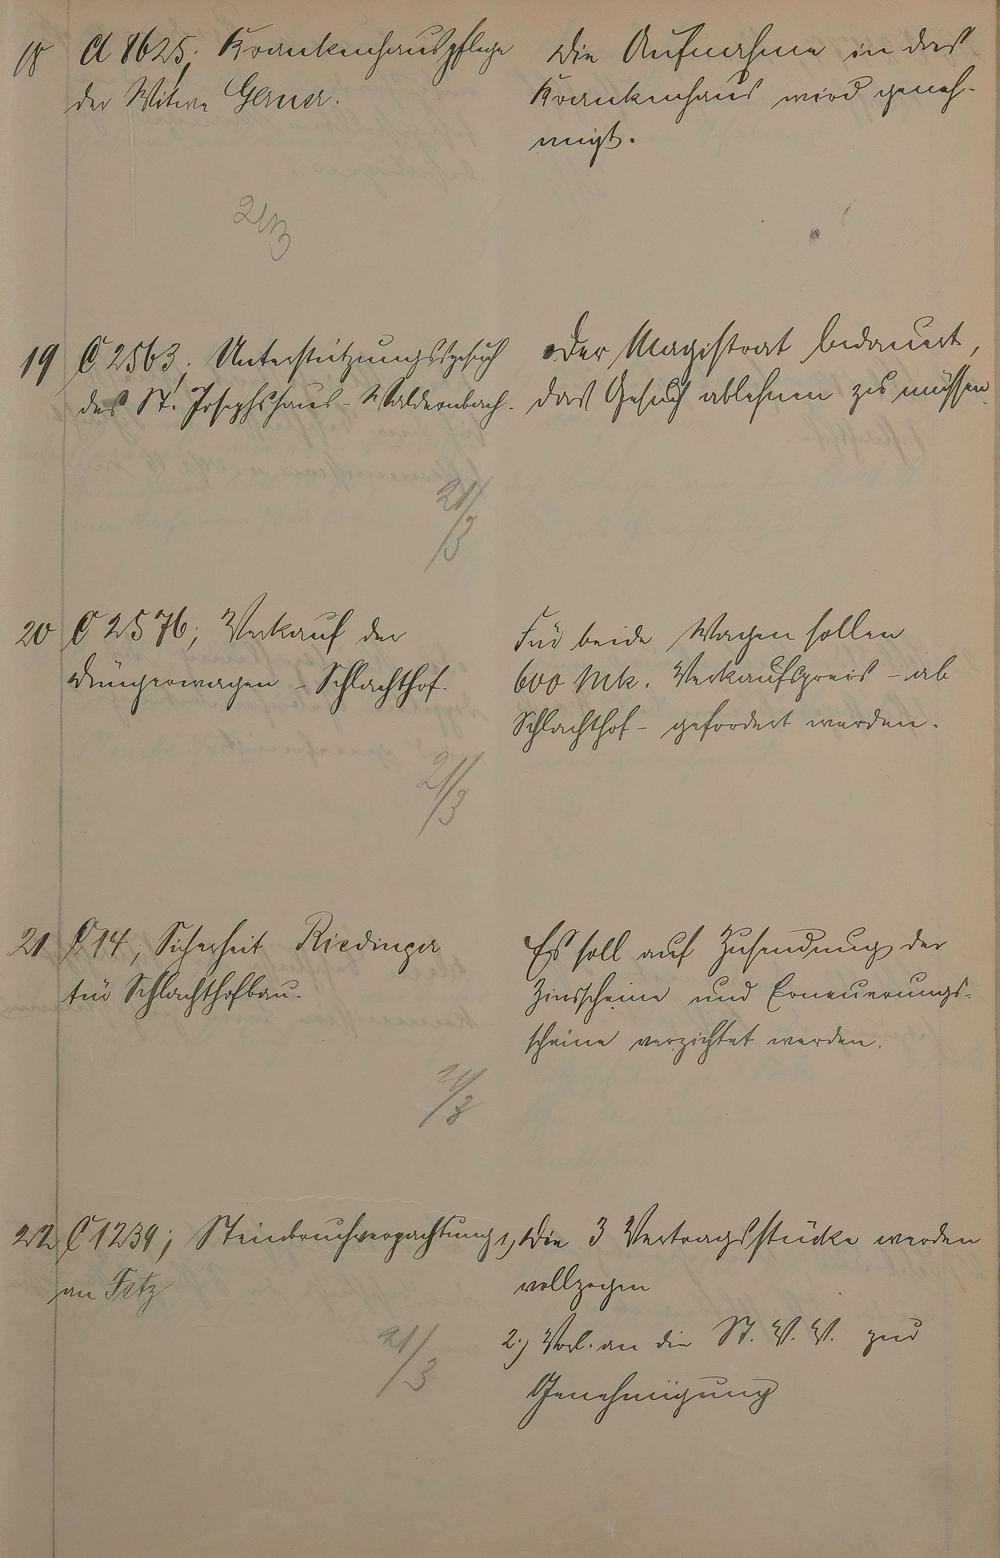 18 A 8625; Krankenhauspflege
der Witwe Gerner.
Die Aufnahme in das
Krankenhaus wird geneh-
migt.
21/3
19 C 2563; Unterstützungsgesuch
des St. Josephshaus - Waldernbach.
Der Magistrat bedauert,
das Gesuch ablehnen zu müssen.
21/3
20 C 2576; Verkauf der
Düngerwagen - Schlachthof.
Für beide Wagen sollen
600 Mk. Verkaufspreis - ab
Schlachthof - gefordert werden.
21/3
21 C 14; Sicherheit Riedinger
für Schlachthofbau.
Es soll auf Zusendung der
Zinsscheine und Erneuerungs-
scheine verzichtet werden.
21/3
22 C 1239; Steinbruchverpachtung
an Fetz
1) Die 3 Vertragsstücke werden
vollzogen
2.) Vorl. an die St. V. V. zur
Genehmigung
21/3